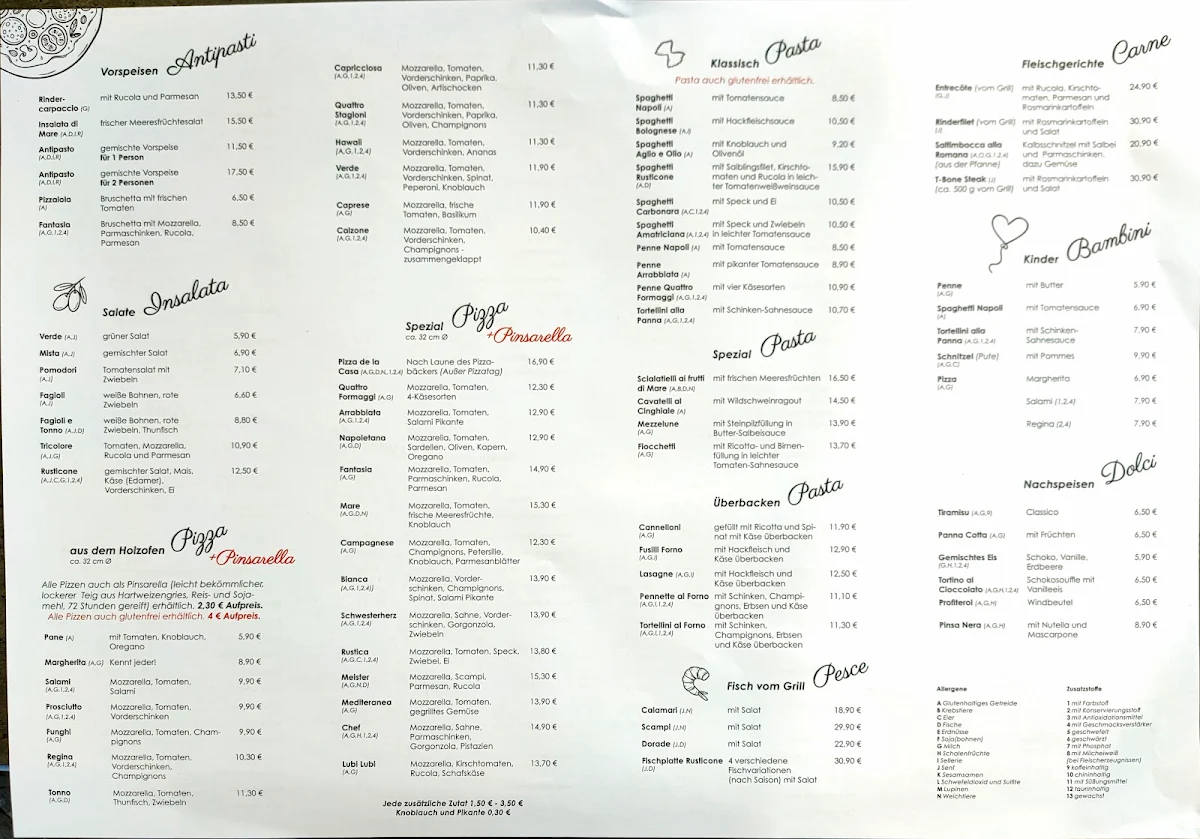 Vorspeisen Antipasti
Rinder- mit Rucola und Parmesan 13,50 €
carpaccio (G)
Insalata di frischer Meeresfrüchtesalat 15,50 €
Mare (A,D,I,R)
Antipasto gemischte Vorspeise 11,50 €
(A,D,I,R) für 1 Person
Antipasto gemischte Vorspeise 17,50 €
(A,D,I,R) für 2 Personen
Pizzaiola Bruschetta mit frischen 6,50 €
(A) Tomaten
Fantasia Bruschetta mit Mozzarella, 8,50 €
(A,G,1,2,4) Parmaschinken, Rucola,
Parmesan
Salate Insalata
Verde (A,J) grüner Salat 5,90 €
Mista (A,J) gemischter Salat 6,90 €
Pomodori Tomatensalat mit 7,10 €
(A,J) Zwiebeln
Fagioli weiße Bohnen, rote 6,60 €
(A,J) Zwiebeln
Fagioli e weiße Bohnen, rote 8,80 €
Tonno (A,J,D) Zwiebeln, Thunfisch
Tricolore Tomaten, Mozzarella, 10,90 €
(A,J,G) Rucola und Parmesan
Rusticone gemischter Salat, Mais, 12,50 €
(A,J,C,G,1,2,4) Käse (Edamer),
Vorderschinken, Ei
aus dem Holzofen Pizza
ca. 32 cm Ø +Pinsarella
Alle Pizzen auch als Pinsarella (leicht bekömmlicher,
lockerer Teig aus Hartweizengries, Reis- und Soja-
mehl, 72 Stunden gereift) erhältlich. 2,30 € Aufpreis.
Alle Pizzen auch glutenfrei erhältlich. 4 € Aufpreis.
Pane (A) mit Tomaten, Knoblauch, 5,90 €
Oregano
Margherita (A,G) Kennt jeder! 8,90 €
Salami Mozzarella, Tomaten, 9,90 €
(A,G,1,2,4) Salami
Prosciutto Mozzarella, Tomaten, 9,90 €
(A,G,1,2,4) Vorderschinken
Funghi Mozzarella, Tomaten, Cham- 9,90 €
(A,G) pignons
Regina Mozzarella, Tomaten, 10,30 €
(A,G,1,2,4) Vorderschinken,
Champignons
Tonno Mozzarella, Tomaten, 11,30 €
(A,G,D) Thunfisch, Zwiebeln
Capricciosa Mozzarella, Tomaten, 11,30 €
(A,G,1,2,4) Vorderschinken, Paprika,
Oliven, Artischocken
Quattro Mozzarella, Tomaten, 11,30 €
Stagioni Vorderschinken, Paprika,
(A,G,1,2,4) Oliven, Champignons
Hawaii Mozzarella, Tomaten, 11,30 €
(A,G,1,2,4) Vorderschinken, Ananas
Verde Mozzarella, Tomaten, 11,90 €
(A,G,1,2,4) Vorderschinken, Spinat,
Peperoni, Knoblauch
Caprese Mozzarella, frische 11,90 €
(A,G) Tomaten, Basilikum
Calzone Mozzarella, Tomaten, 10,40 €
(A,G,1,2,4) Vorderschinken,
Champignons -
zusammengeklappt
Spezial Pizza
ca. 32 cm Ø +Pinsarella
Pizza de la Nach Laune des Pizza- 16,90 €
Casa (A,G,D,N,,1,2,4) bäckers (Außer Pizzatag)
Quattro Mozzarella, Tomaten, 12,30 €
Formaggi (A,G) 4-Käsesorten
Arrabbiata Mozzarella, Tomaten, 12,90 €
(A,G,1,2,4) Salami Pikante
Napoletana Mozzarella, Tomaten, 12,90 €
(A,G,D) Sardellen, Oliven, Kapern,
Oregano
Fantasia Mozzarella, Tomaten, 14,90 €
(A,G) Parmaschinken, Rucola,
Parmesan
Mare Mozzarella, Tomaten, 15,30 €
(A,G,D,N) frische Meeresfrüchte,
Knoblauch
Campagnese Mozzarella, Tomaten, 12,30 €
(A,G) Champignons, Petersilie,
Knoblauch, Parmesanblätter
Bianca Mozzarella, Vorder- 13,90 €
(A,G,1,2,4)) schinken, Champignons,
Spinat, Salami Pikante
Schwesterherz Mozzarella, Sahne, Vorder- 13,90 €
(A,G,1,2,4) schinken, Gorgonzola,
Zwiebeln
Rustica Mozzarella, Tomaten, Speck, 13,80 €
(A,G,C,1,2,4) Zwiebel, Ei
Meister Mozzarella, Scampi, 15,30 €
(A,G,N,D) Parmesan, Rucola
Mediteranea Mozzarella, Tomaten, 13,90 €
(A,G) gegrilltes Gemüse
Chef Mozzarella, Sahne, 14,90 €
(A,G,H,1,2,4) Parmaschinken,
Gorgonzola, Pistazien
Lubi Lubi Mozzarella, Kirschtomaten, 13,70 €
(A,G) Rucola, Schafskäse
Jede zusätzliche Zutat 1,50 € - 3,50 €
Knoblauch und Pikante 0,30 €
Klassisch Pasta
Pasta auch glutenfrei erhältlich.
Spaghetti mit Tomatensauce 8,50 €
Napoli (A)
Spaghetti mit Hackfleischsauce 10,50 €
Bolognese (A,I)
Spaghetti mit Knoblauch und 9,20 €
Aglio e Olio (A) Olivenöl
Spaghetti mit Saiblingsfilet, Kirschto- 15,90 €
Rusticone maten und Rucola in leich-
(A,D) ter Tomatenweißweinsauce
Spaghetti mit Speck und Ei 10,50 €
Carbonara (A,C,1,2,4)
Spaghetti mit Speck und Zwiebeln 10,50 €
Amatriciana (A,1,2,4) in leichter Tomatensauce
Penne Napoli (A) mit Tomatensauce 8,50 €
Penne mit pikanter Tomatensauce 8,90 €
Arrabbiata (A)
Penne Quattro mit vier Käsesorten 10,90 €
Formaggi (A,G,1,2,4)
Tortellini alla mit Schinken-Sahnesauce 10,70 €
Panna (A,G,1,2,4)
Spezial Pasta
Scialatielli ai frutti mit frischen Meeresfrüchten 16,50 €
di Mare (A,B,D,N)
Cavatelli al mit Wildschweinragout 14,50 €
Cinghiale (A)
Mezzelune mit Steinpilzfüllung in 13,90 €
(A,G) Butter-Salbeisauce
Fiocchetti mit Ricotta- und Birnen- 13,70 €
(A,G) füllung in leichter
Tomaten-Sahnesauce
Überbacken Pasta
Cannelloni gefüllt mit Ricotta und Spi- 11,90 €
(A,G) nat mit Käse überbacken
Fusilli Forno mit Hackfleisch und 12,90 €
(A,G,I) Käse überbacken
Lasagne (A,G,I) mit Hackfleisch und 12,50 €
Käse überbacken
Pennette al Forno mit Schinken, Champi- 11,10 €
(A,G,I,1,2,4) gnons, Erbsen und Käse
überbacken
Tortellini al Forno mit Schinken, 11,30 €
(A,G,I,1,2,4) Champignons, Erbsen
und Käse überbacken
Fisch vom Grill Pesce
Calamari (J,N) mit Salat 18,90 €
Scampi (J,N) mit Salat 29,90 €
Dorade (J,D) mit Salat 22,90 €
Fischplatte Rusticone 4 verschiedene 30,90 €
(J,D) Fischvariationen
(nach Saison) mit Salat
Fleischgerichte Carne
Entrecôte (vom Grill) mit Rucola, Kirschto- 24,90 €
(G,J) maten, Parmesan und
Rosmarinkartoffeln
Rinderfilet (vom Grill) mit Rosmarinkartoffeln 30,90 €
(J) und Salat
Saltimbocca alla Kalbsschnitzel mit Salbei 20,90 €
Romana (A,O,G,1,2,4) und Parmaschinken,
(aus der Pfanne) dazu Gemüse
T-Bone Steak (J) mit Rosmarinkartoffeln 30,90 €
(ca. 500 g vom Grill) und Salat
Kinder Bambini
Penne mit Butter 5,90 €
(A,G)
Spaghetti Napoli mit Tomatensauce 6,90 €
(A)
Tortellini alla mit Schinken- 7,90 €
Panna (A,G,1,2,4) Sahnesauce
Schnitzel (Pute) mit Pommes 9,90 €
(A,G,C)
Pizza Margherita 6,90 €
(A,G)
Salami (1,2,4) 7,90 €
Regina (2,4) 7,90 €
Nachspeisen Dolci
Tiramisu (A,G,9) Classico 6,50 €
Panna Cotta (A,G) mit Früchten 6,50 €
Gemischtes Eis Schoko, Vanille, 5,90 €
(G,H,1,2,4) Erdbeere
Tortino al Schokosouffle mit 6,50 €
Cioccolato (A,G,H,1,2,4) Vanilleeis
Profiterol (A,G,H) Windbeutel 6,50 €
Pinsa Nera (A,G,H) mit Nutella und 8,90 €
Mascarpone
Allergene
A Glutenhaltiges Getreide
B Krebstiere
C Eier
D Fische
E Erdnüsse
F Soja(bohnen)
G Milch
H Schalenfrüchte
I Sellerie
J Senf
K Sesamsamen
L Schwefeldioxid und Sulfite
M Lupinen
N Weichtiere
Zusatzstoffe
1 mit Farbstoff
2 mit Konservierungsstoff
3 mit Antioxidationsmittel
4 mit Geschmacksverstärker
5 geschwefelt
6 geschwärzt
7 mit Phosphat
8 mit Milcheiweiß
(bei Fleischerzeugnissen)
9 koffeinhaltig
10 chininhaltig
11 mit Süßungsmittel
12 taurinhaltig
13 gewachst